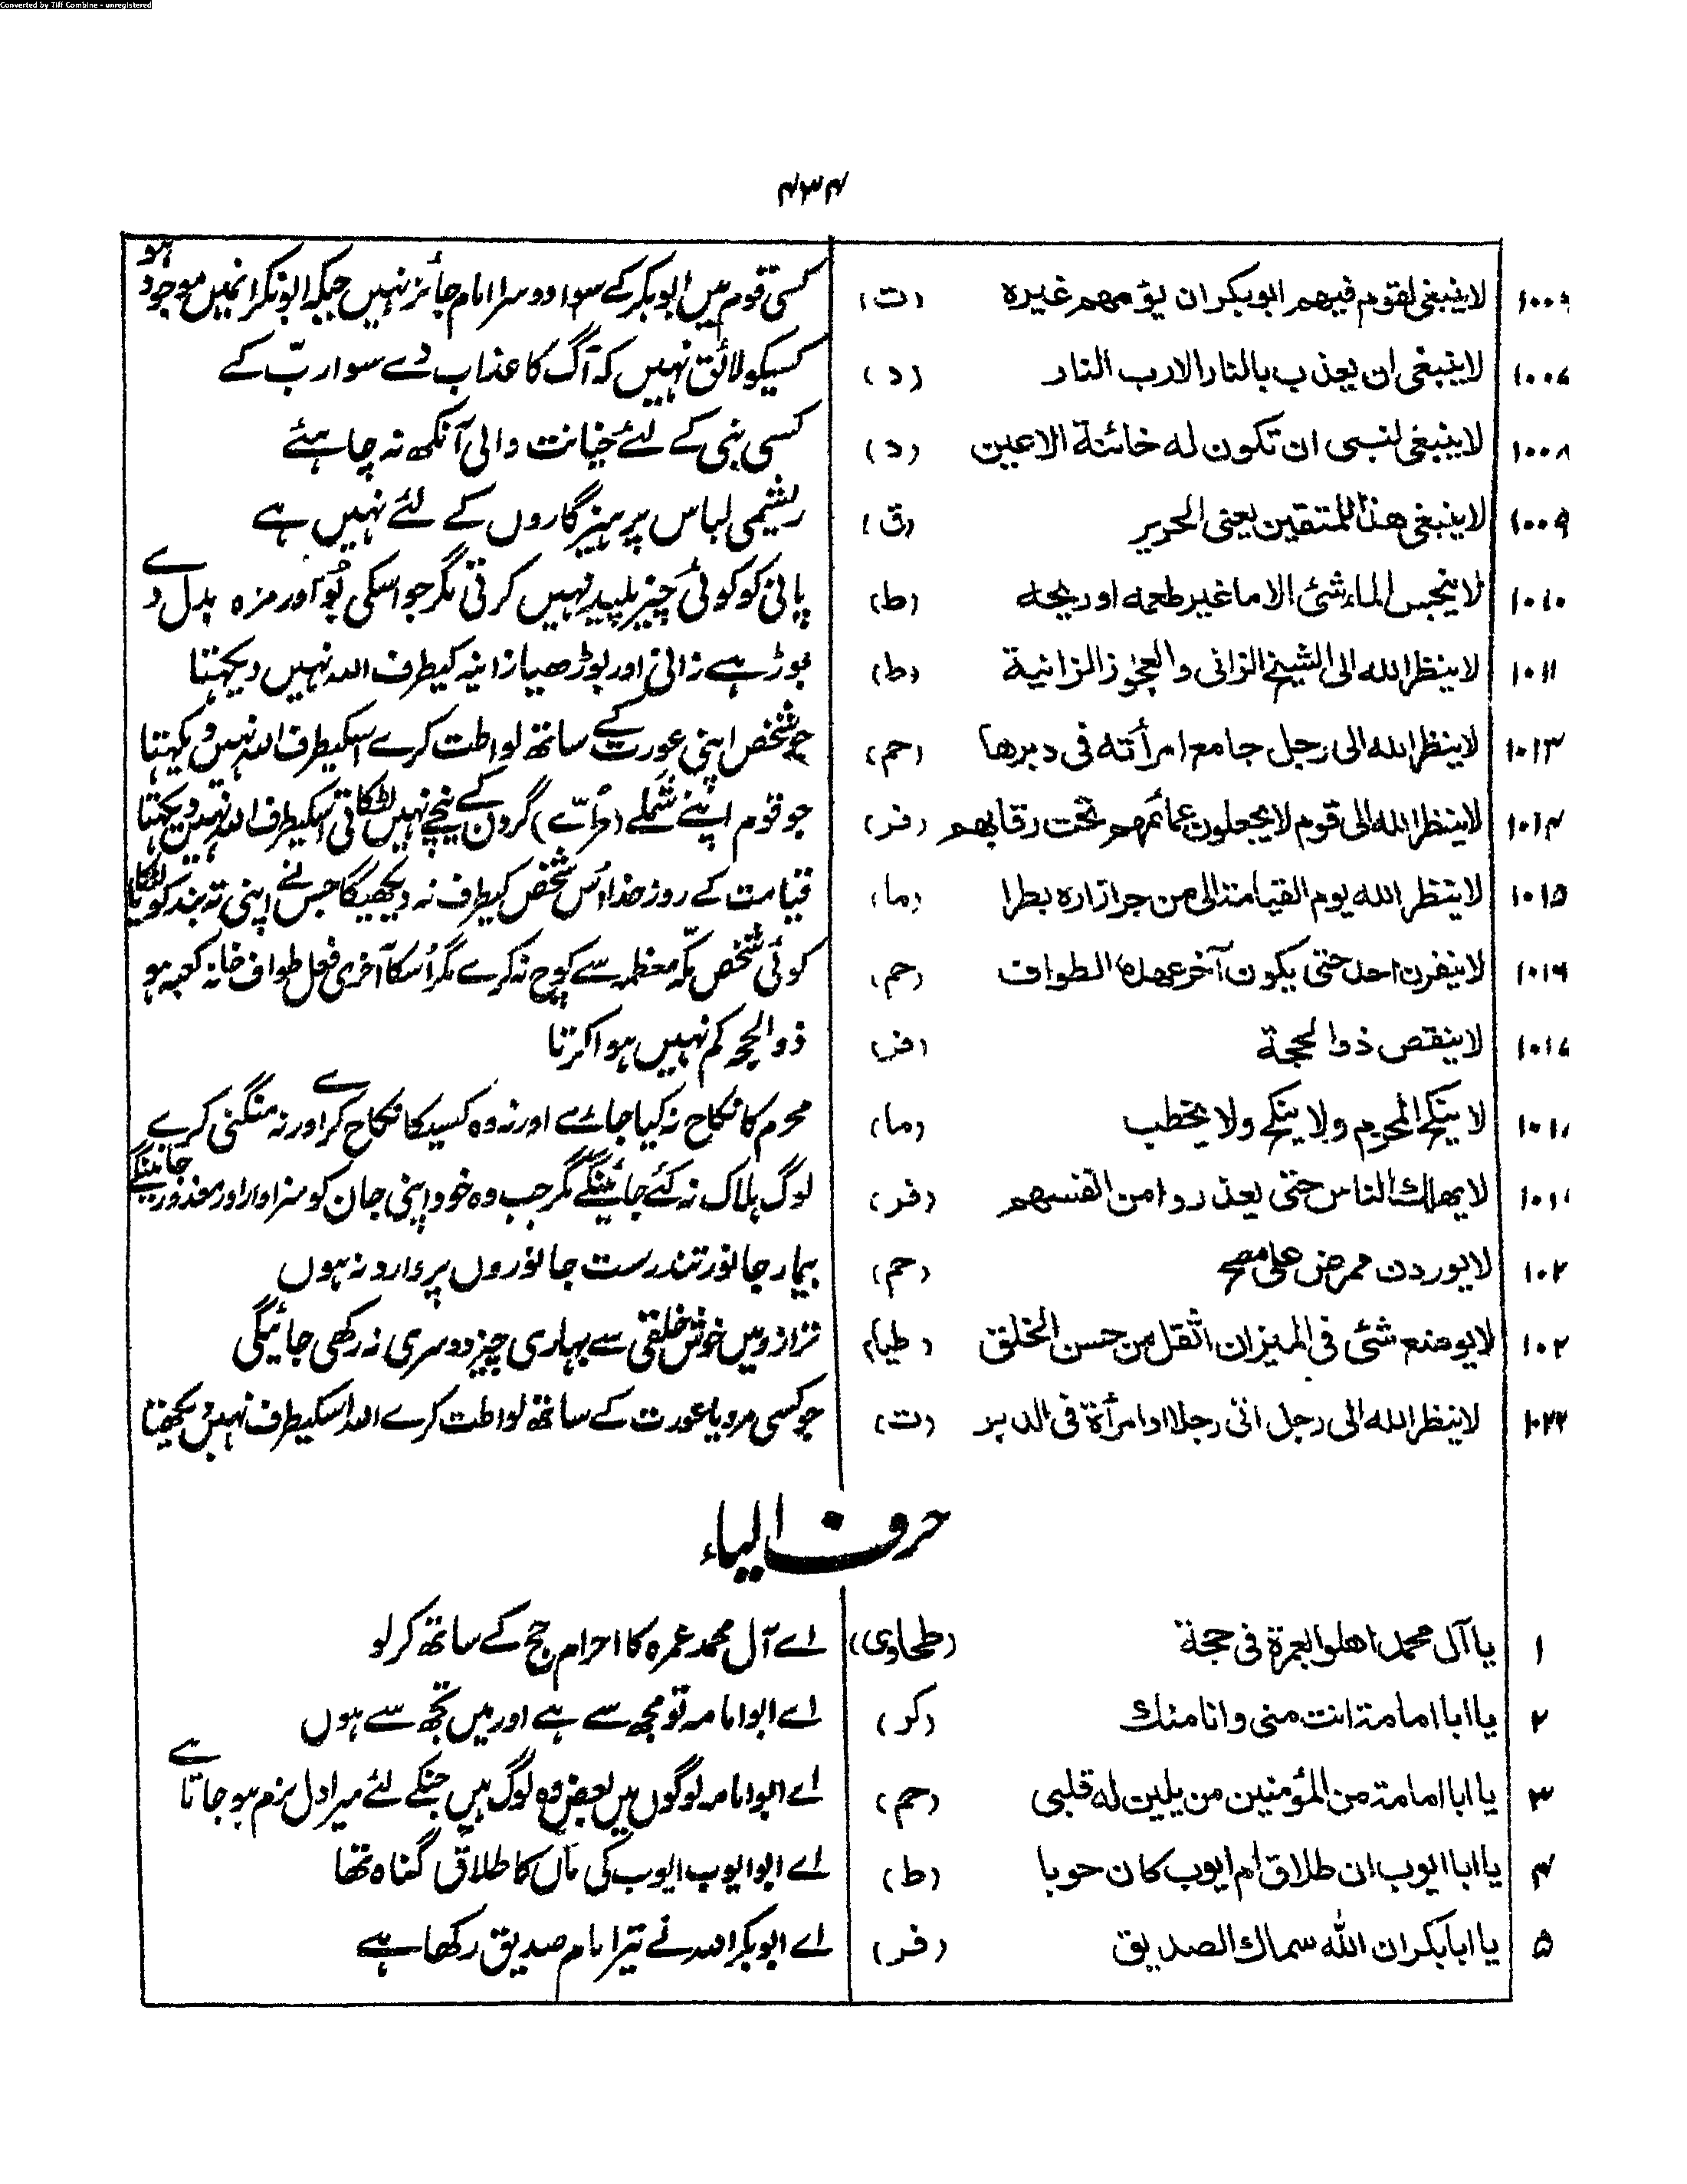 Converted by Tiff Combine - unregistered
۴۳۴
لاینبغی لقوم فیهم ابوبکر ان یؤمهم غیره (ت) کسی قوم میں ابوبکر کے سوا دوسرا امام جائز نہیں جبکہ ابوبکر انمیں موجود ہو
۱۰۰۷ لاینبغی ان یعذب بالنار الارب النار (د) کسیکو لائق نہیں کہ آگ کا عذاب دے سوا ربّ کے
۱۰۰۸ لاینبغی لنبی ان تکون له خائنة الاعین (د) کسی نبی کے لئے خیانت والی آنکھ نہ چاہئے
۱۰۰۹ لاینبغی هذا للمتقین یعنی الحریر (ق) ریشمی لباس پرہیزگاروں کے لئے نہیں ہے
۱۰۱۰ لا ینجس الماء شئ الا ما غیر طعمه او ریحه (ط) پانی کو کوئی چیز پلید نہیں کرتی مگر جو اسکی بُو اور مزہ بدل دے
۱۰۱۱ لاینظر الله الی الشیخ الزانی والعجوز الزانیة (ط) بوڑہے زانی اور بوڑھیا زانیہ کیطرف اللہ نہیں دیکہتا
۱۰۱۳ لاینظر الله الی رجل جامع امرأته فی دبرها (حم) جو شخص اپنی عورت کے ساتھ لواطت کرے اسکیطرف اللہ نہیں دیکہتا
۱۰۱۴ لاینظر الله الی قوم لایجعلون عمائمهم تحت رقابهم (فر) جو قوم اپنے شملے گردن کے نیچے نہیں لٹکاتی اسکیطرف اللہ نہیں دیکہتا
۱۰۱۵ لاینظر الله یوم القیامة الی من جر ازاره بطرا (ما) قیامت کے روز خدا اُس شخص کیطرف نہ دیکھیگا جس نے اپنی تہ بند کو لٹکایا
۱۰۱۶ لاینفرن احد حتی یکون آخر عهده الطواف (حم) کوئی شخص مکّہ معظمہ سے کوچ نہ کرے مگر اُسکا آخری فعل طواف خانہ کعبہ ہو
۱۰۱۷ لاینقص ذوالحجة (فر) ذوالحجہ کم نہیں ہوا کرتا
۱۰۱۸ لا ینکح المحرم ولا ینکح ولا یخطب (ما) محرم کا نکاح نہ کیا جائے اور نہ وہ کسیکا نکاح کرے اور نہ منگنی کرے
لایهلك الناس حتی یعذروا من انفسهم (فر) لوگ ہلاک نہ کئے جائینگے مگر جب وہ خود اپنی جان کو سزاوار اور معذور جانینگے
لایوردن ممرض علی مصح (حم) بیمار جانور تندرست جانوروں پر وارد نہ ہوں
لایوضع شئ فی المیزان اثقل من حسن الخلق ترازو میں خوش خلقی سے بہاری چیز دوسری نہ رکھی جائیگی
۱۰۲۲ لاینظر الله الی رجل اتی رجلا او امرأة فی الدبر (ت) جو کسی مرد یا عورت کے ساتھ لواطت کرے اللہ اسکیطرف نہیں دیکھتا
حرف الیاء
۱ یاآل محمد اهلوا بعمرة فی حجة (طحاوی) اے آل محمد عمرہ کا احرام حج کے ساتھ کرلو
۲ یاابا امامة انت منی وانا منك (کر) اے ابوامامہ تو مجھ سے ہے اور میں تجھ سے ہوں
۳ یاابا امامة من المؤمنین من یلین له قلبی (حم) اے ابوامامہ لوگوں میں بعض وہ لوگ ہیں جنکے لئے میرا دل نرم ہو جاتا ہے
۴ یاابا ایوب ان طلاق ام ایوب کان حوبا (ط) اے ابو ایوب ایوب کی ماں کا طلاق گناہ تھا
۵ یاابابکر ان الله سماك الصدیق (فر) اے ابوبکر اللہ نے تیرا نام صدیق رکھا ہے